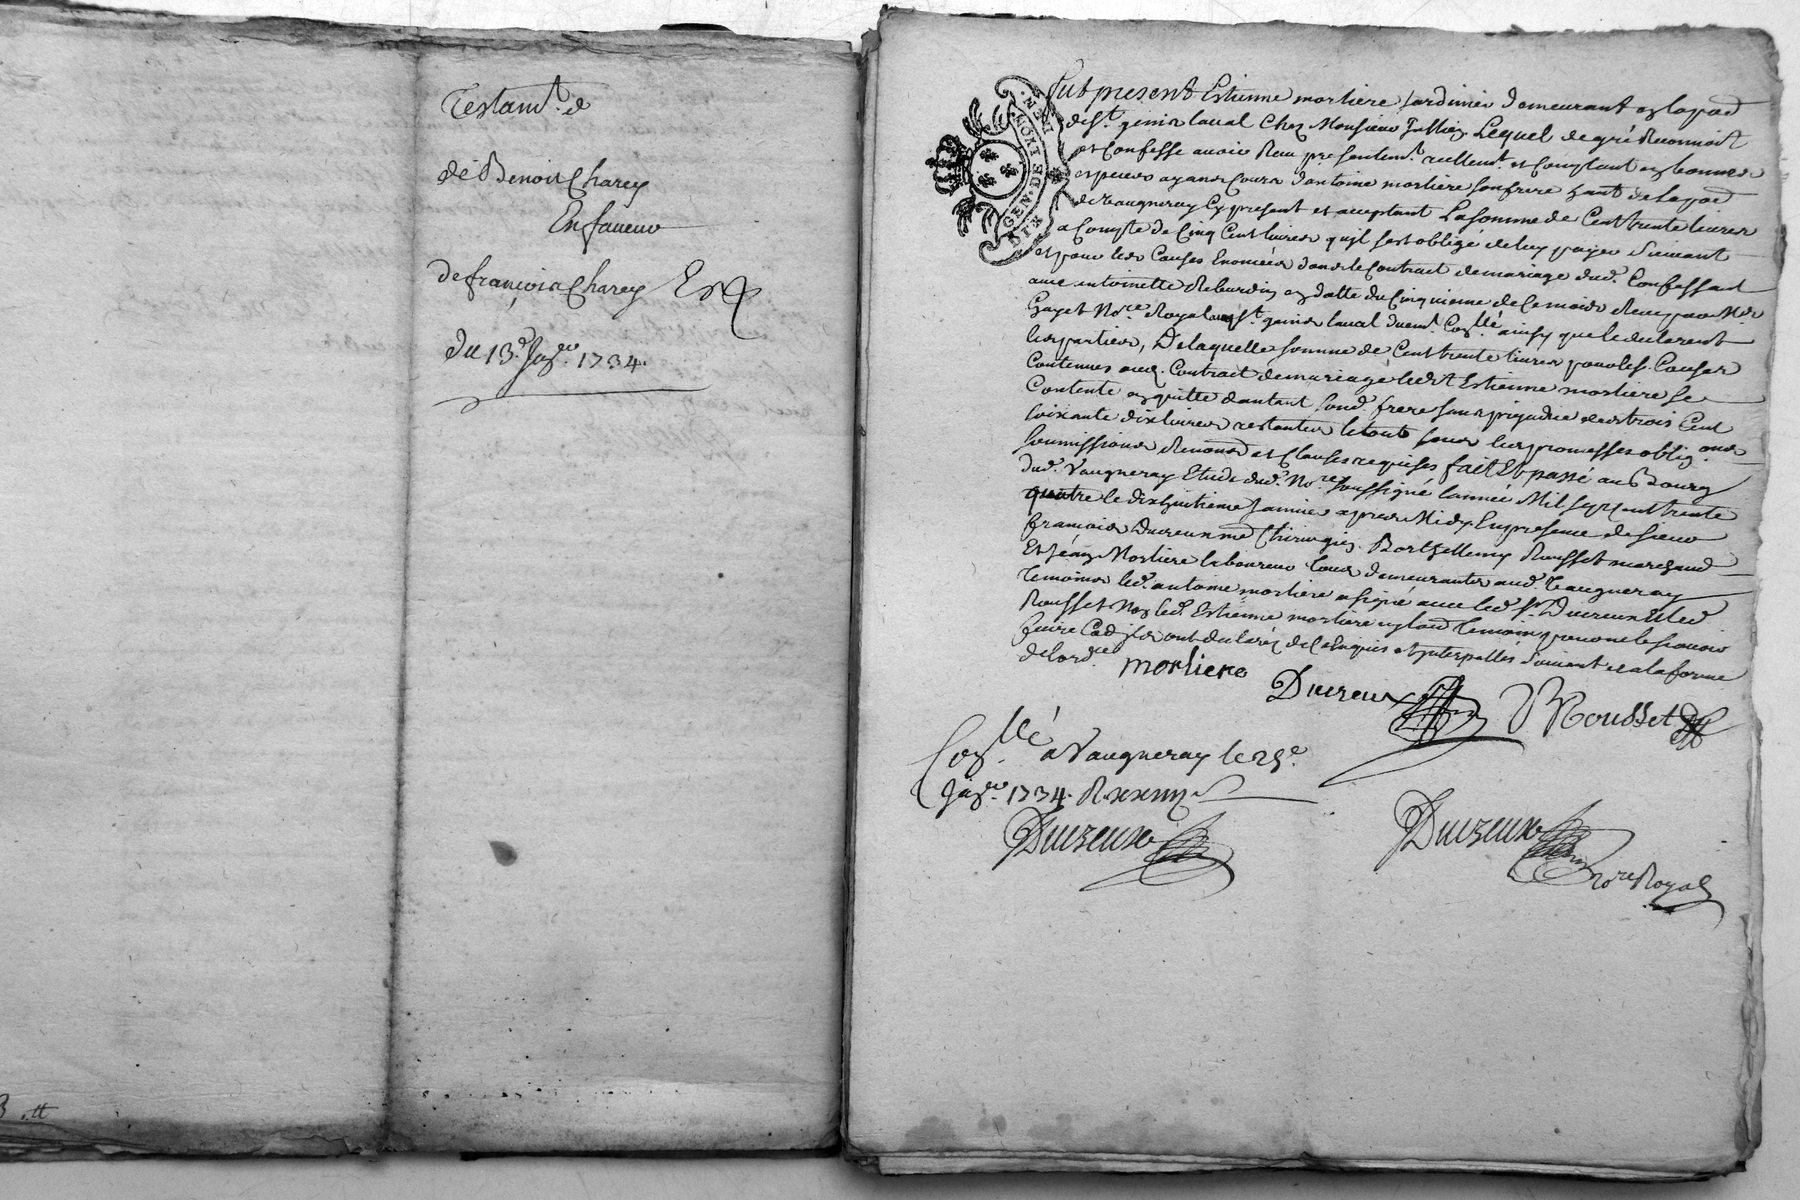 Testamt. e
de Benoit Charey
En faveur
de françois Charey Ex
du 13e. Jave. 1734.
3 .tt
GEN. DE MON. MEN.
DIX
fut present Estienne morliere Jardinier demeurant en la par
de St. genis laval chez Monsieur Lequel de gré Reconnoit
et Confesse avoir Reçu presentemt. reellemt. et Comptant en bonnes
especes ayans Cours d'antoine morliere son frere hant de la par
de Vaugneray Cy present et acceptant La somme de Cent trente livres
a Compte de Cinq Cent livres qu'jl s'est obligé de luy payer suivant
et pour les Causes Enoncées dans le Contrait de mariage dud. Confessant
avec antoinette Rebourdin en datte du Cinquieme de ce mois Reçu par Me
Gayet Nore Royal a St. genis laval duemt. Conllé ainsy que le declarent
les parties, De laquelle somme de Cent trente livres pour les Causes
Contenues aud. Contrait de mariage ledit Estienne morliere se
Contente en quitte d'autant sond. frere sans prejudice des trois Cent
soixante dix livres restantes le tout sous les promesses oblig.ons
soumissions Renond et Clauses requises fait Et passé au Bourg
dud. Vaugneray Etude dud. Nore soussigné l'année Mil sept Cent trente
quatre le dixhuitieme Janvier apres Midy En presence de sieur
françois Ducreux me Chirurgien Barthellemy Rousset marchand
Et Jean Morliere laboureur tous demeurants aud Vaugneray
temoins led. antoine morliere a signé avec led Sr Ducreux et led
Rousset Non led. Estienne morliere ny l'autre temoin pour ne le sçavoir
faire Cad jls ont declaré de ce Enquis et jnterpellés suivant et a la forme
de l'ordce
morliere
Ducreux Rousset
Conllé a Vaugneray le 29e.
Jave. 1734. R.
Ducreux
Ducreux
Nore Royal